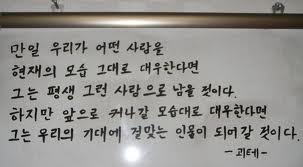 만일 우리가 어떤 사람을
현재의 모습 그대로 대우한다면
그는 평생 그런 사람으로 남을 것이다.
하지만 앞으로 커나갈 모습대로 대우한다면
그는 우리의 기대에 걸맞는 인물이 되어갈 것이다.
- 괴테 -